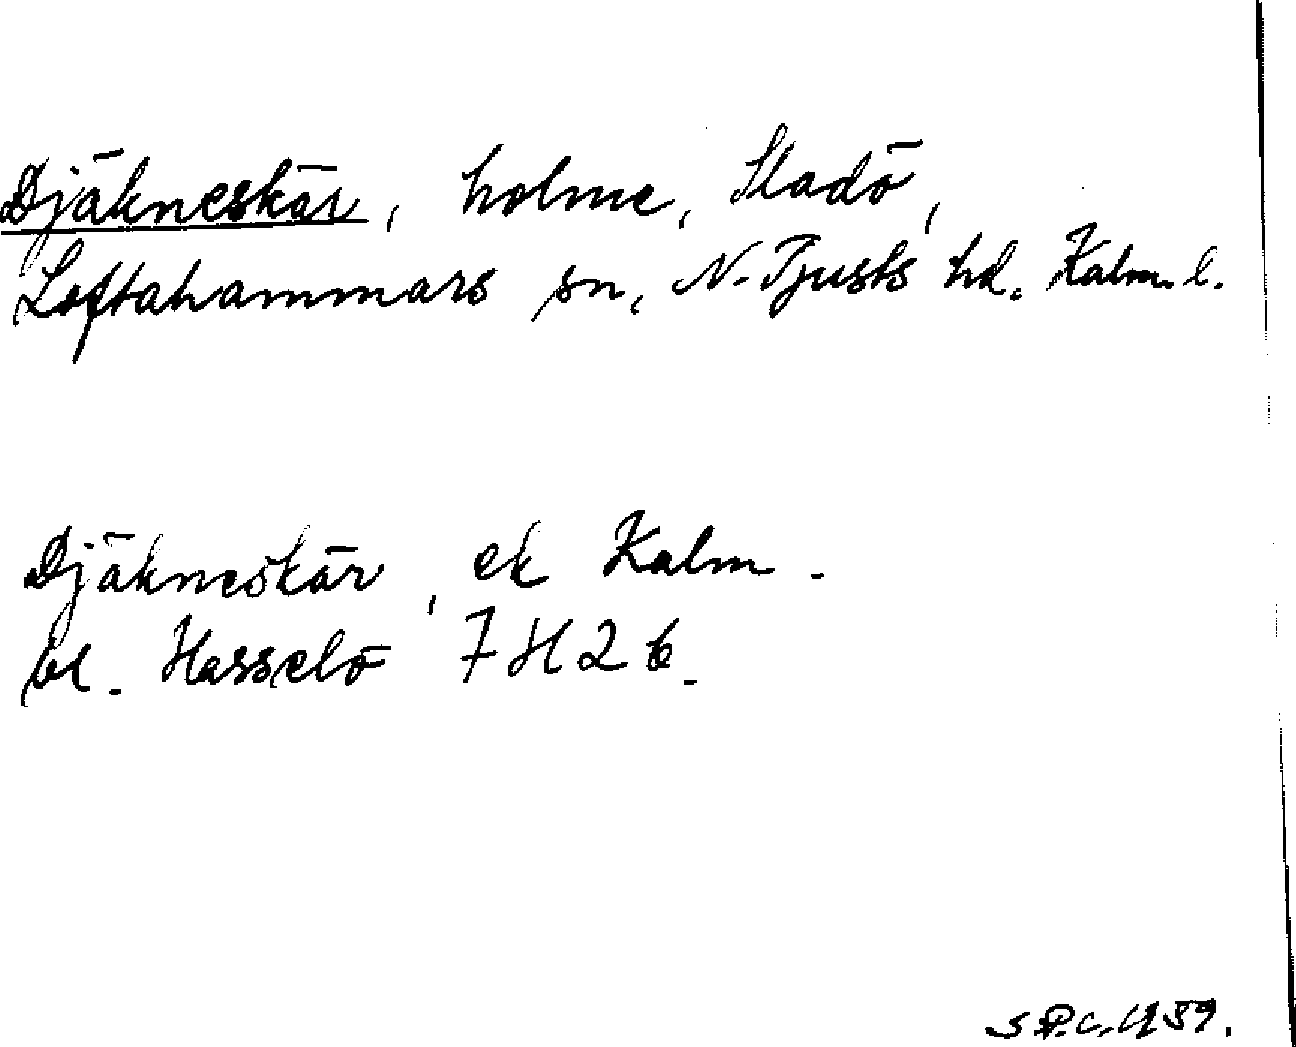 Djäkneskär, holme, Sladö,
Loftahammars sn, N. Tjusts hd. Kalm. l.
Djäkneskär, ek Kalm.
bl. Hasselö 7H2b.
1959.